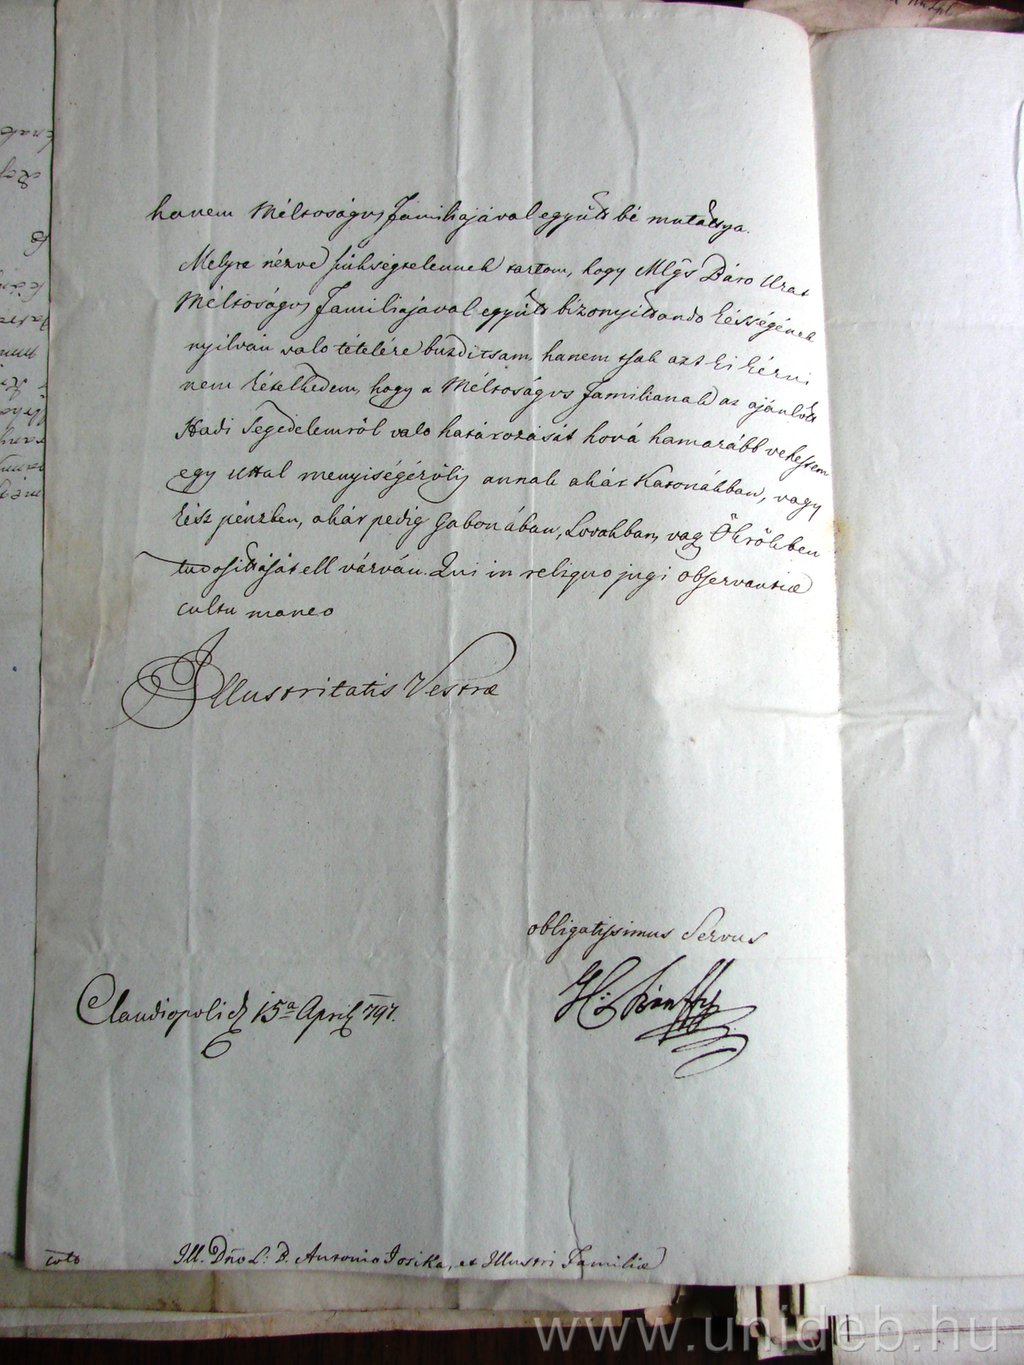 hanem Méltoságos Familiajával együtt bé mutattya.
Melyre nézve szükségtelennek tartom, hogy Mlgs Báro Urat
Méltoságos Familiajával együtt bizonyittando készségének
nyilván valo tételére buzditsam, hanem tsak azt ki kérni
nem kételkedem, hogy a Méltoságos Familianak az ajánlott
Hadi Segedelemröl valo határozását hová hamarább vehessem
egy uttal menyiségéröl is annak akár Katonákban, vagy
kész pénzben, akár pedig Gabonában, Lovakban, vagy Ökrökben
tudosittását ell várván. Qui in reliquo jugi observantiae
cultu maneo
Illustritatis Vestrae
obligatissimus Servus
Claudiopoli d. 15a April 797.
Gr: Bánffy
Ill. Dno L: B. Antonio Josika, et Illustri Familiae
www.unideb.hu